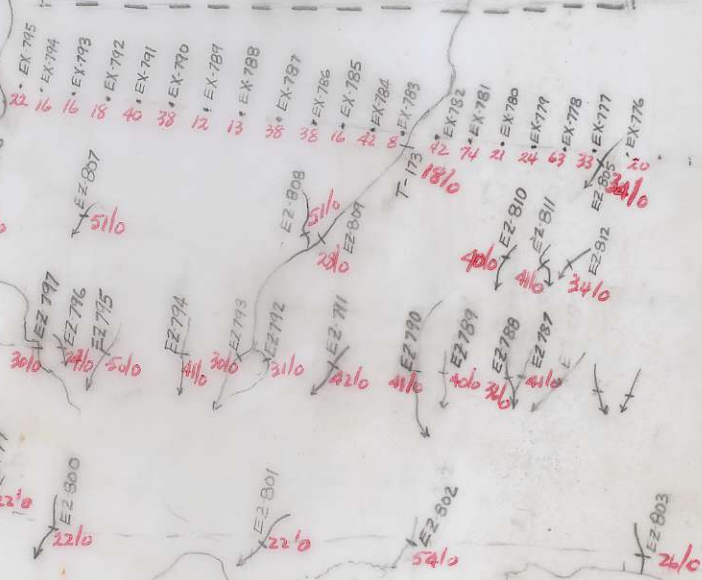 EX-795 EX-794 EX-793 EX-792 EX-791 EX-790 EX-789 EX-788 EX-787 EX-786 EX-785 EX-784 EX-783 EX-782 EX-781 EX-780 EX-779 EX-778 EX-777 EX-776
22 16 16 18 40 38 12 13 38 38 16 42 8 42 74 21 24 63 33 20
T-173 18/0
EZ-805 34/0
EZ-807 51/0
EZ-808 51/0
EZ-809
EZ-810 40/0
EZ-811 41/0
EZ-812 34/0
EZ 797 30/0
EZ-796
EZ-795 50/0
EZ 794 41/0
EZ 793 30/0
EZ 792 31/0
42/0
EZ 790 41/0
EZ-789 40/0
EZ 788
EZ 787 41/0
EZ-800 22/0
EZ-801 22/0
EZ-802 54/0
EZ 803 26/0